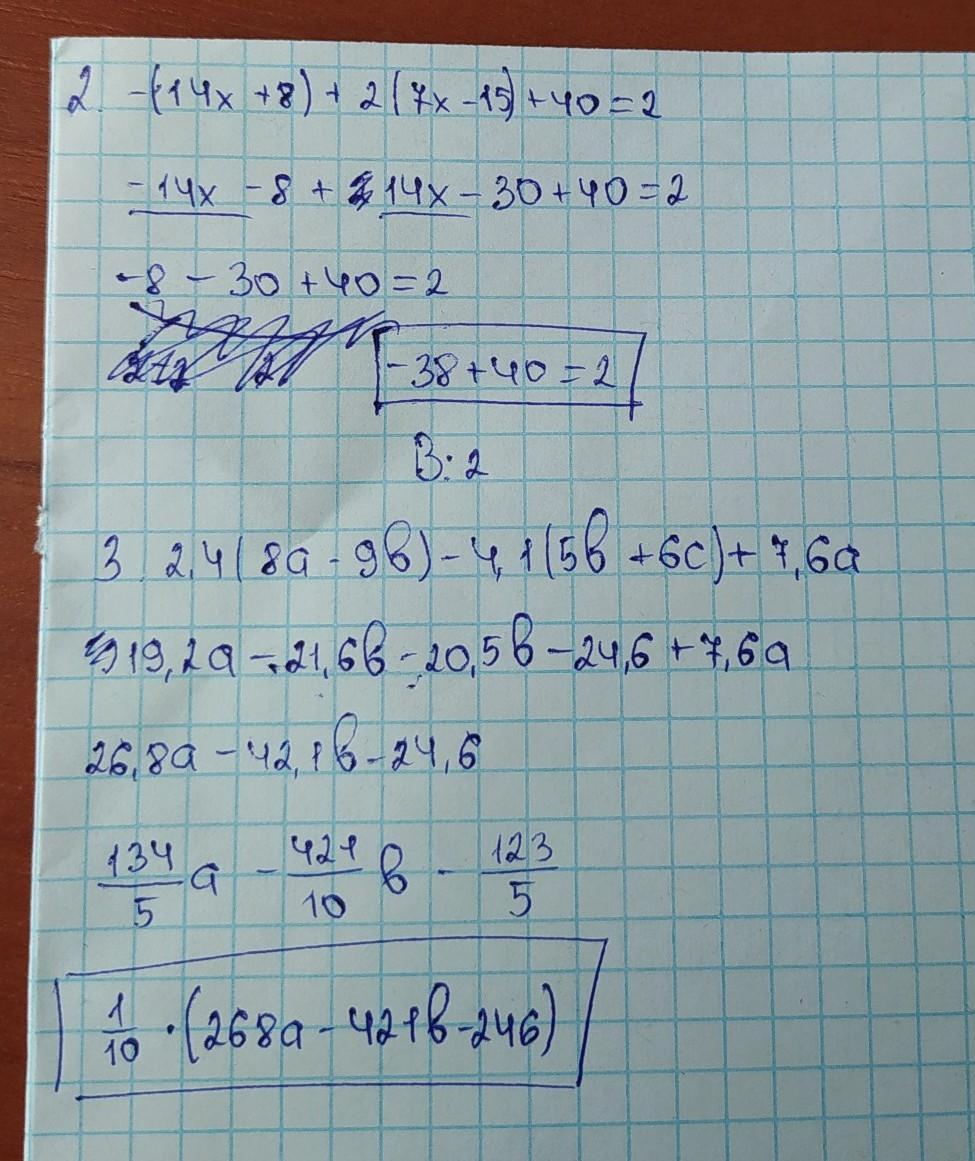 2. -(14x +8) + 2(7x -15) +40 = 2
-14x -8 + 14x - 30 + 40 = 2
-8 - 30 + 40 = 2
-38 + 40 = 2
В: 2
3. 2,4(8a - 9в) - 4,1(5в + 6c) + 7,6a
19,2a - 21,6в - 20,5в - 24,6 + 7,6a
26,8a - 42,1в - 24,6
134/5 a - 421/10 в - 123/5
1/10 · (268a - 421в - 246)